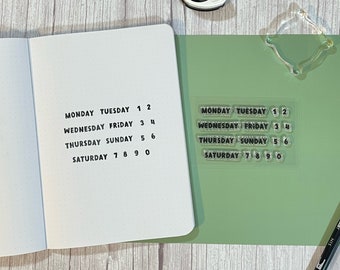 MONDAY TUESDAY 1 2
WEDNESDAY FRIDAY 3 4
THURSDAY SUNDAY 5 6
SATURDAY 7 8 9 0
MONDAY TUESDAY 1 2
WEDNESDAY FRIDAY 3 4
THURSDAY SUNDAY 5 6
SATURDAY 7 8 9 0